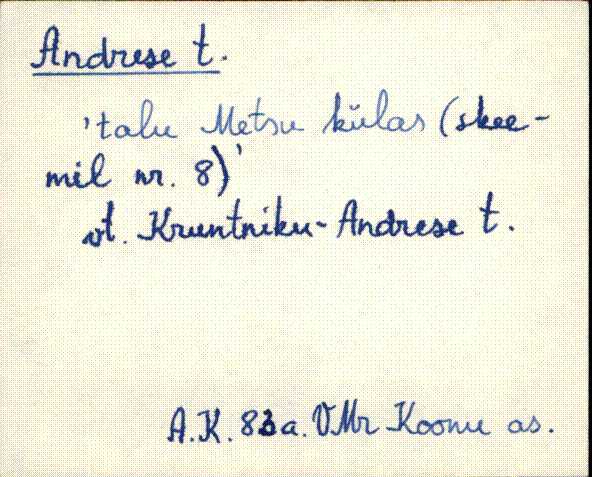 Andrese t.
'talu Metsu külas (skee-
mil nr. 8)'
vt. Kruntniku-Andrese t.
A.K. 83a. VMr Koonu as.